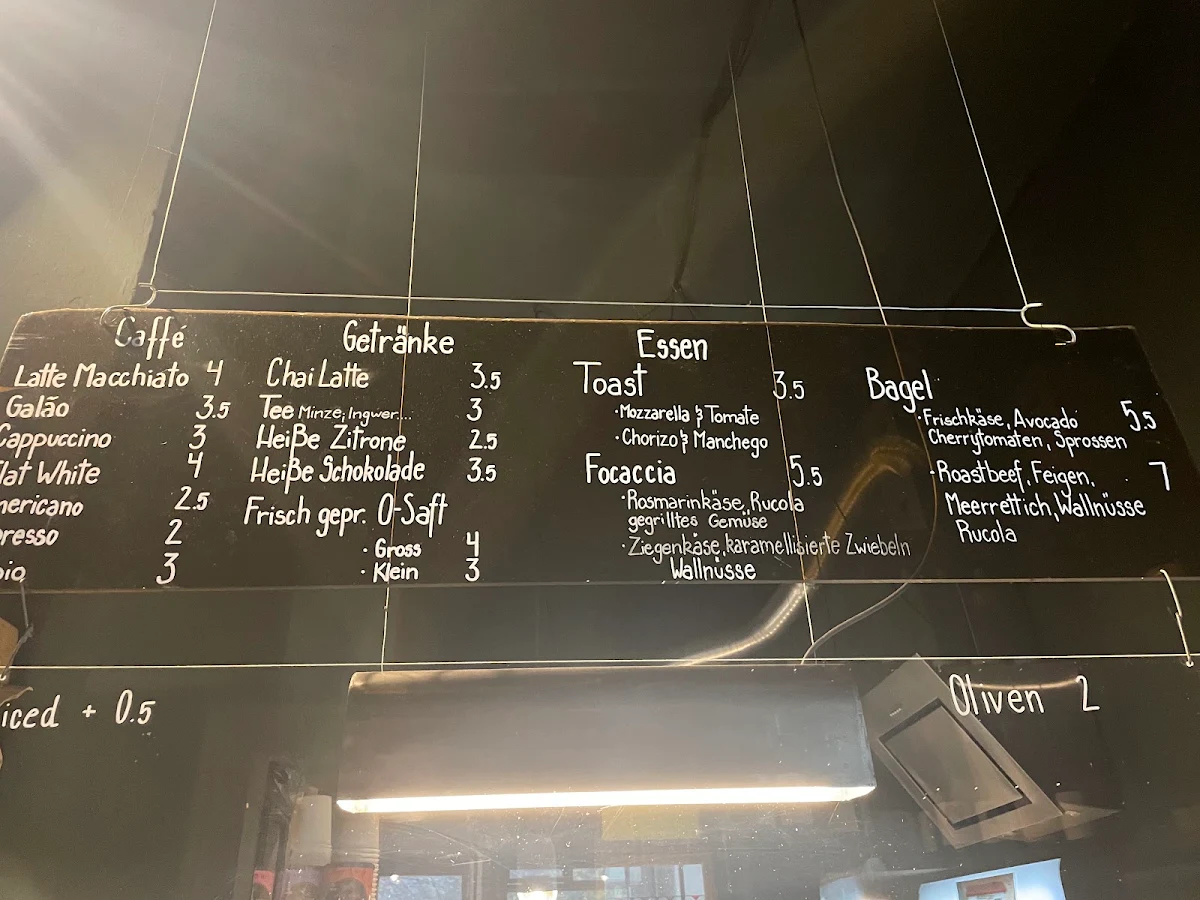 Caffé
Latte Macchiato 4
Galão 3.5
Cappuccino 3
lat White 4
mericano 2.5
resso 2
3
Getränke
Chai Latte 3.5
Tee Minze, Ingwer... 3
Heiße Zitrone 2.5
Heiße Schokolade 3.5
Frisch gepr. O-Saft
· Gross 4
· Klein 3
Essen
Toast 3.5
· Mozzarella & Tomate
· Chorizo & Manchego
Focaccia 5.5
· Rosmarinkäse, Rucola
gegrilltes Gemüse
· Ziegenkäse, karamellisierte Zwiebeln
Wallnüsse
Bagel
· Frischkäse, Avocado 5.5
Cherrytomaten, Sprossen
· Roastbeef, Feigen, 7
Meerrettich, Wallnüsse
Rucola
iced + 0.5
Oliven 2